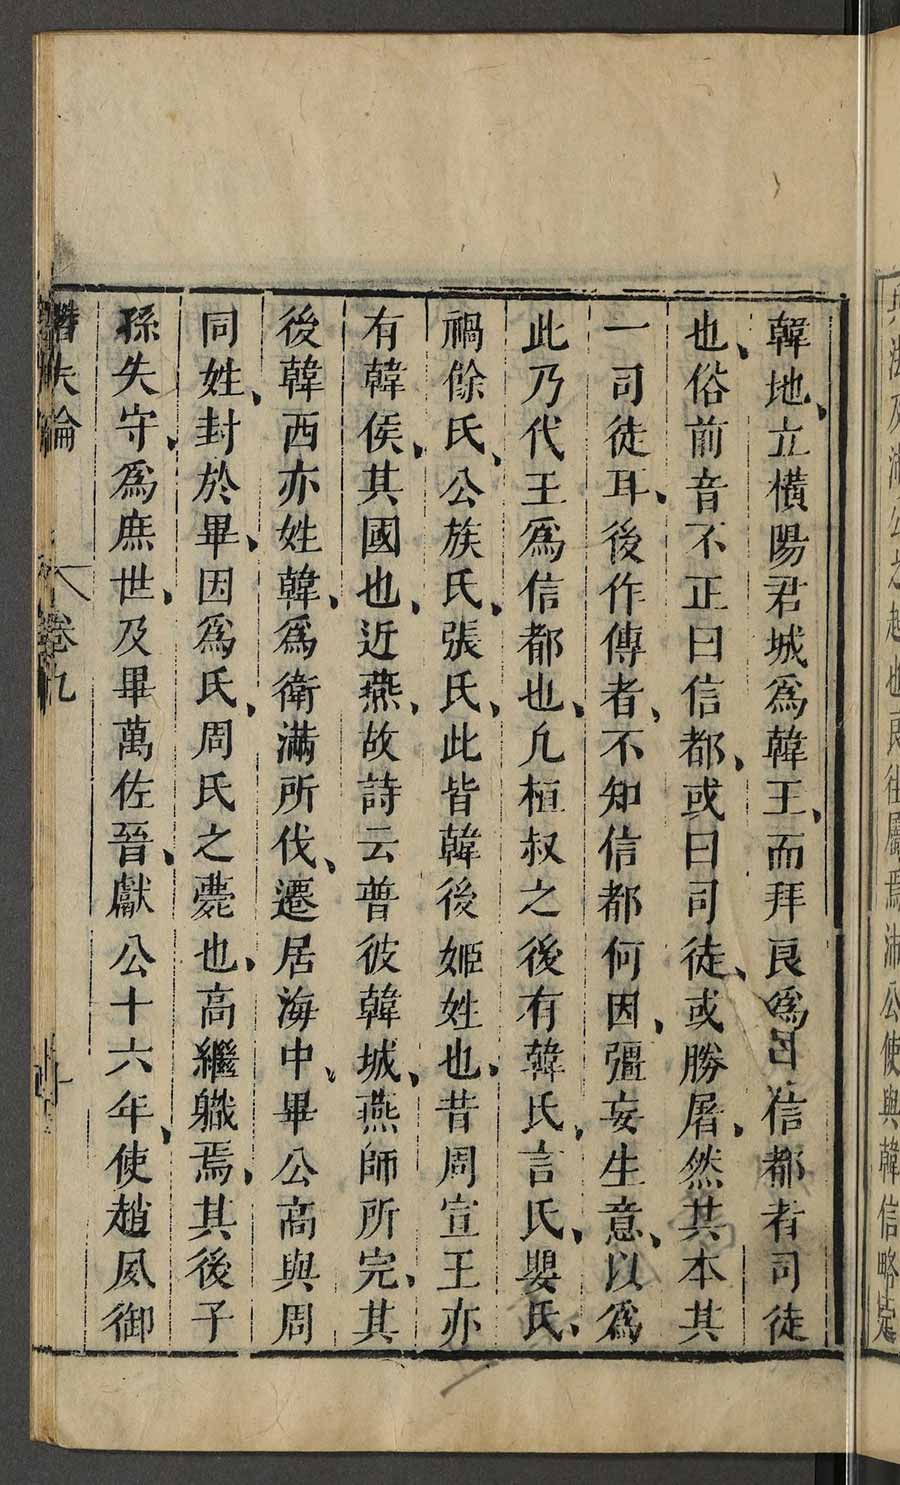 韓地、立橫陽君城爲韓王、而拜良爲□信都者司徒
也、俗前音不正曰信都、或曰司徒、或勝屠、然其本其
一司徒耳、後作傳者、不知信都何因、彊妄生意、以爲
此乃代王爲信都也、凢桓叔之後有韓氏、言氏、嬰氏、
禍餘氏、公族氏、張氏、此皆韓後姬姓也、昔周宣王亦
有韓侯、其國也、近燕、故詩云普彼韓城、燕師所完、其
後韓西亦姓韓、爲衛滿所伐、遷居海中、畢公高與周
同姓、封於畢、因爲氏、周氏之薨也、高繼職焉、其後子
孫失守、爲庶世、及畢萬佐晉、獻公十六年、使趙夙御
潛夫論 卷九